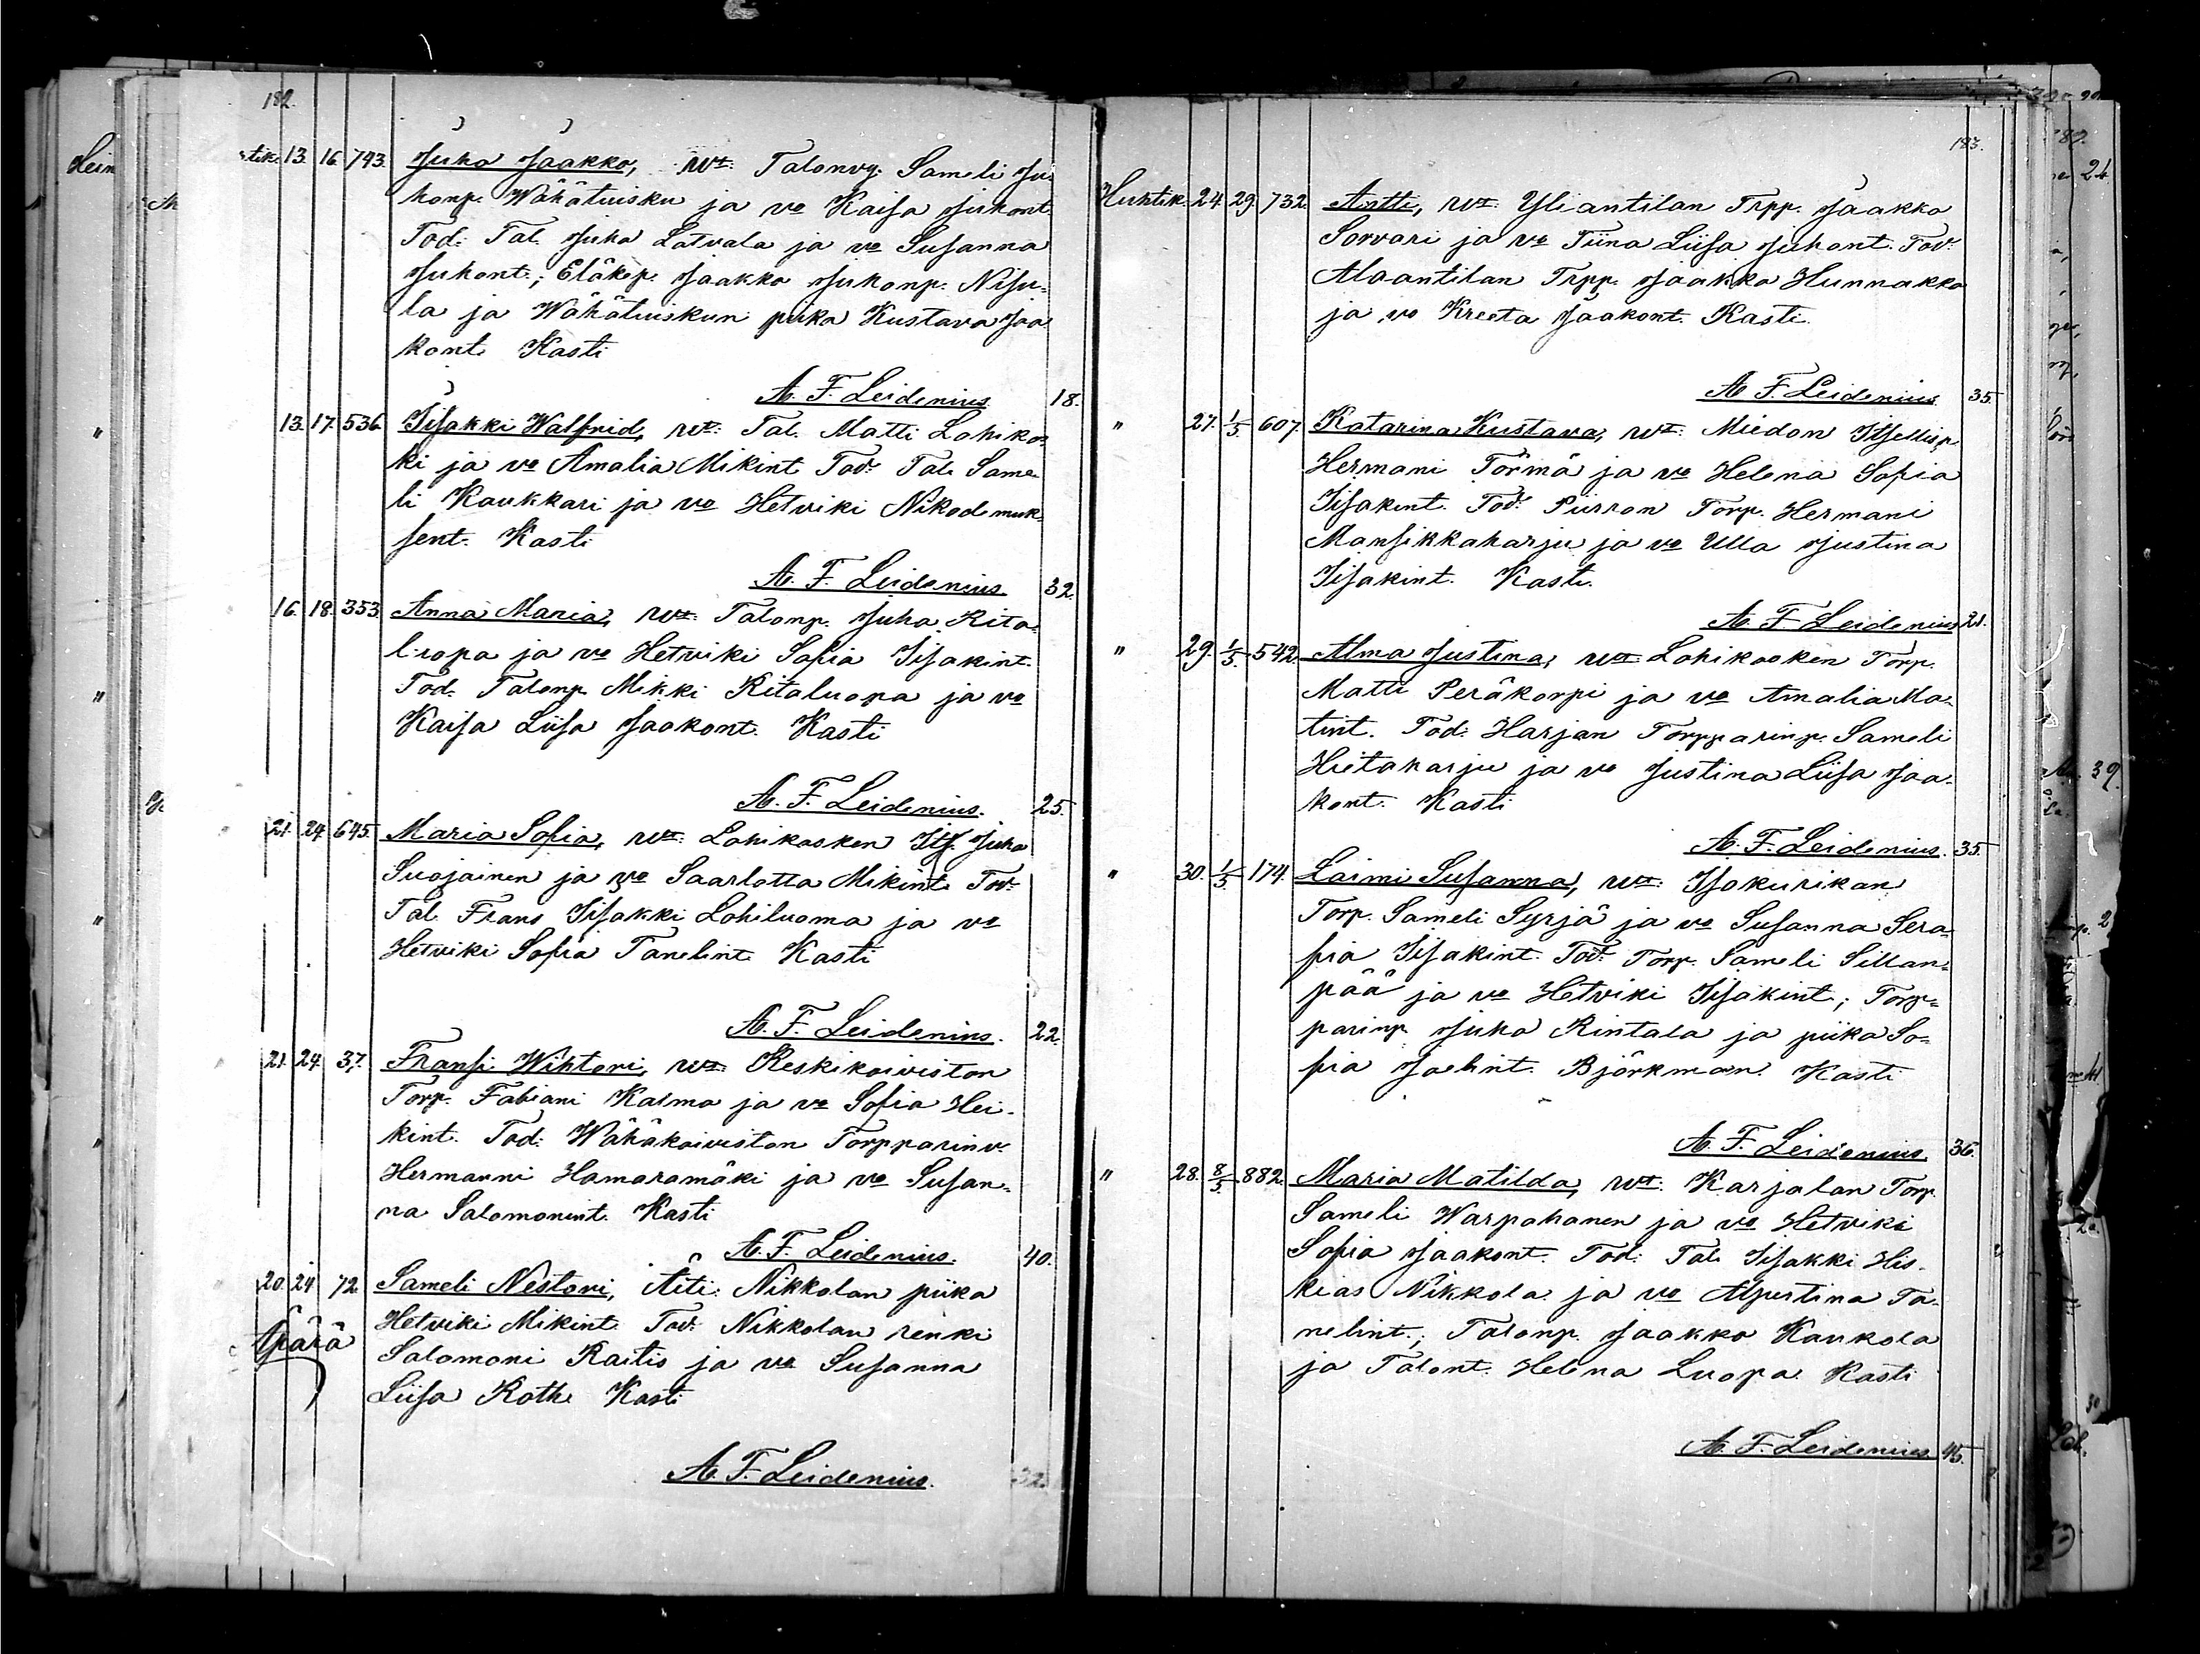 182.
Huhtik. 13. 16. 793. Juha Jaakko, Wt: Talonvg. Sameli Ju-
honp. Wähätuisku ja vo Kaisa Juhont.
Tod: Tal. Juha Latvala ja vo Susanna
Juhont.; Eläkep. Jaakko Juhonp. Nisu-
la ja Wähätuiskun piika Kustava Jaa-
kont. Kasti
A. F. Leidenius. 18.
" 13. 17. 536. Iisakki Walfrid, Wt: Tal. Matti Lohikos-
ki ja vo Amalia Mikint. Tod: Tal. Same-
li Kaukkari ja vo Hetviki Nikodemuk-
sent. Kasti
A. F. Leidenius. 32.
16. 18. 353. Anna Maria, Wt: Talonp. Juha Rita-
luopa ja vo Hetviki Sofia Iisakint.
Tod: Talonp. Mikki Ritaluopa ja vo
Kaisa Liisa Jaakont. Kasti
A. F. Leidenius. 25.
21. 24. 645. Maria Sofia, Wt: Lohikosken Its. Juha
Suojainen ja vo Saarlotta Mikint. Tod:
Tal. Frans Iisakki Lohiluoma ja vo
Hetviki Sofia Tanelint. Kasti
A. F. Leidenius. 22.
21. 24. 37. Fransi Wihtori, Wt: Keskikoiviston
Torp. Fabiani Kalma ja vo Sofia Hei-
kint. Tod: Wähäkoiviston Torpparinv.
Hermanni Hamaramäki ja vo Susan-
na Salomonint. Kasti
A. F. Leidenius. 40.
20. 24. 72. Sameli Nestori, Äiti: Nikkolan piika
Hetviki Mikint. Tod: Nikkolan renki
Äpärä
Salomoni Raitis ja vo Susanna
Liisa Roth. Kasti
A. F. Leidenius. 32.
183.
Huhtik. 24. 29. 732. Antti, Wt: Yliantilan Trpp. Jaakko
Sorvari ja vo Tiina Liisa Juhont. Tod:
Alaantilan Trpp. Jaakko Hunnakko
ja vo Kreeta Jaakont. Kasti.
A. F. Leidenius. 35.
" 27. 1/5. 607. Katarina Kustava, Wt: Miedon Itsellisp.
Hermani Törmä ja vo Helena Sofia
Iisakint. Tod: Piirron Torp. Hermani
Mansikkaharju ja vo Ulla Justina
Iisakint. Kasti.
A. F. Leidenius 21.
" 29. 1/5. 542. Alma Justina, Wt: Lohikosken Torp.
Matti Peräkorpi ja vo Amalia Ma-
tint. Tod: Harjan Torpparinp. Sameli
Hietaharju ja vo Justina Liisa Jaa-
kont. Kasti
A. F. Leidenius. 35.
" 30. 1/5. 174. Laimi Susanna, Wt: Isokurikan
Torp. Sameli Syrjä ja vo Susanna Sera-
pia Iisakint. Tod: Torp. Sameli Sillan-
pää ja vo Hetviki Iisakint.; Torp-
parinp. Juha Rintala ja piika So-
pia Joelint. Björkman. Kasti
A. F. Leidenius. 36.
" 28. 8/5. 882. Maria Matilda, Wt: Karjalan Torp.
Sameli Warpahanen ja vo Hetviki
Sofia Jaakont. Tod: Tal. Iisakki His-
kias Nikkola ja vo Alpertina Ta-
nelint.; Talonp. Jaakko Kaukola
ja Talont. Helena Luopa. Kasti
A. F. Leidenius. 45.